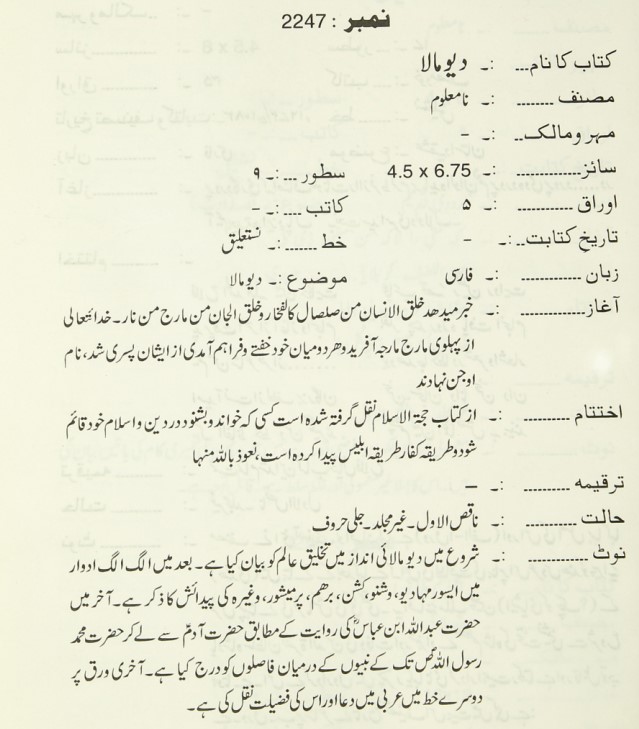 نمبر : 2247
کتاب کا نام... :۔ دیومالا
مصنف ........ :۔ نامعلوم
مہر ومالک.. :۔ -
سائز............ :۔ 4.5 x 6.75 سطور ...:۔ ۹
اوراق ........... :۔ ۵ کاتب ....:۔ -
تاریخ کتابت..:۔ - خط .......:۔ نستعلیق
زبان ............ :۔ فارسی موضوع :۔ دیومالا
آغاز............ :۔ خبر میدهد خلق الانسان من صلصال کالفخار وخلق الجان من مارج من نار۔ خدا تعالی
از پہلوی مارج مارجہ آفرید وھر دو میان خود خفتے وفراہم آمدی از ایشان پسری شد، نام
او جن نہادند
اختتام .......... :۔ از کتاب حجۃ الاسلام نقل گرفتہ شدہ است کسی کہ خواند و بشنود در دین و اسلام خود قائم
شود و طریقہ کفار طریقہ ابلیس پیدا کردہ است، نعوذ باللہ منہا
ترقیمہ .......... :۔ –
حالت .......... :۔ ناقص الاول۔ غیر مجلد۔ جلی حروف
نوٹ ............ :۔ شروع میں دیومالائی انداز میں تخلیق عالم کو بیان کیا ہے۔ بعد میں الگ الگ ادوار
میں ایسور مہادیو، وشنو، کشن، برھم، پرمیشور، وغیرہ کی پیدائش کا ذکر ہے۔ آخر میں
حضرت عبداللہ ابن عباسؓ کی روایت کے مطابق حضرت آدمؑ سے لے کر حضرت محمد
رسول اللہؐ تک کے نبیوں کے درمیان فاصلوں کو درج کیا ہے۔ آخری ورق پر
دوسرے خط میں عربی میں دعا اور اس کی فضیلت نقل کی ہے۔